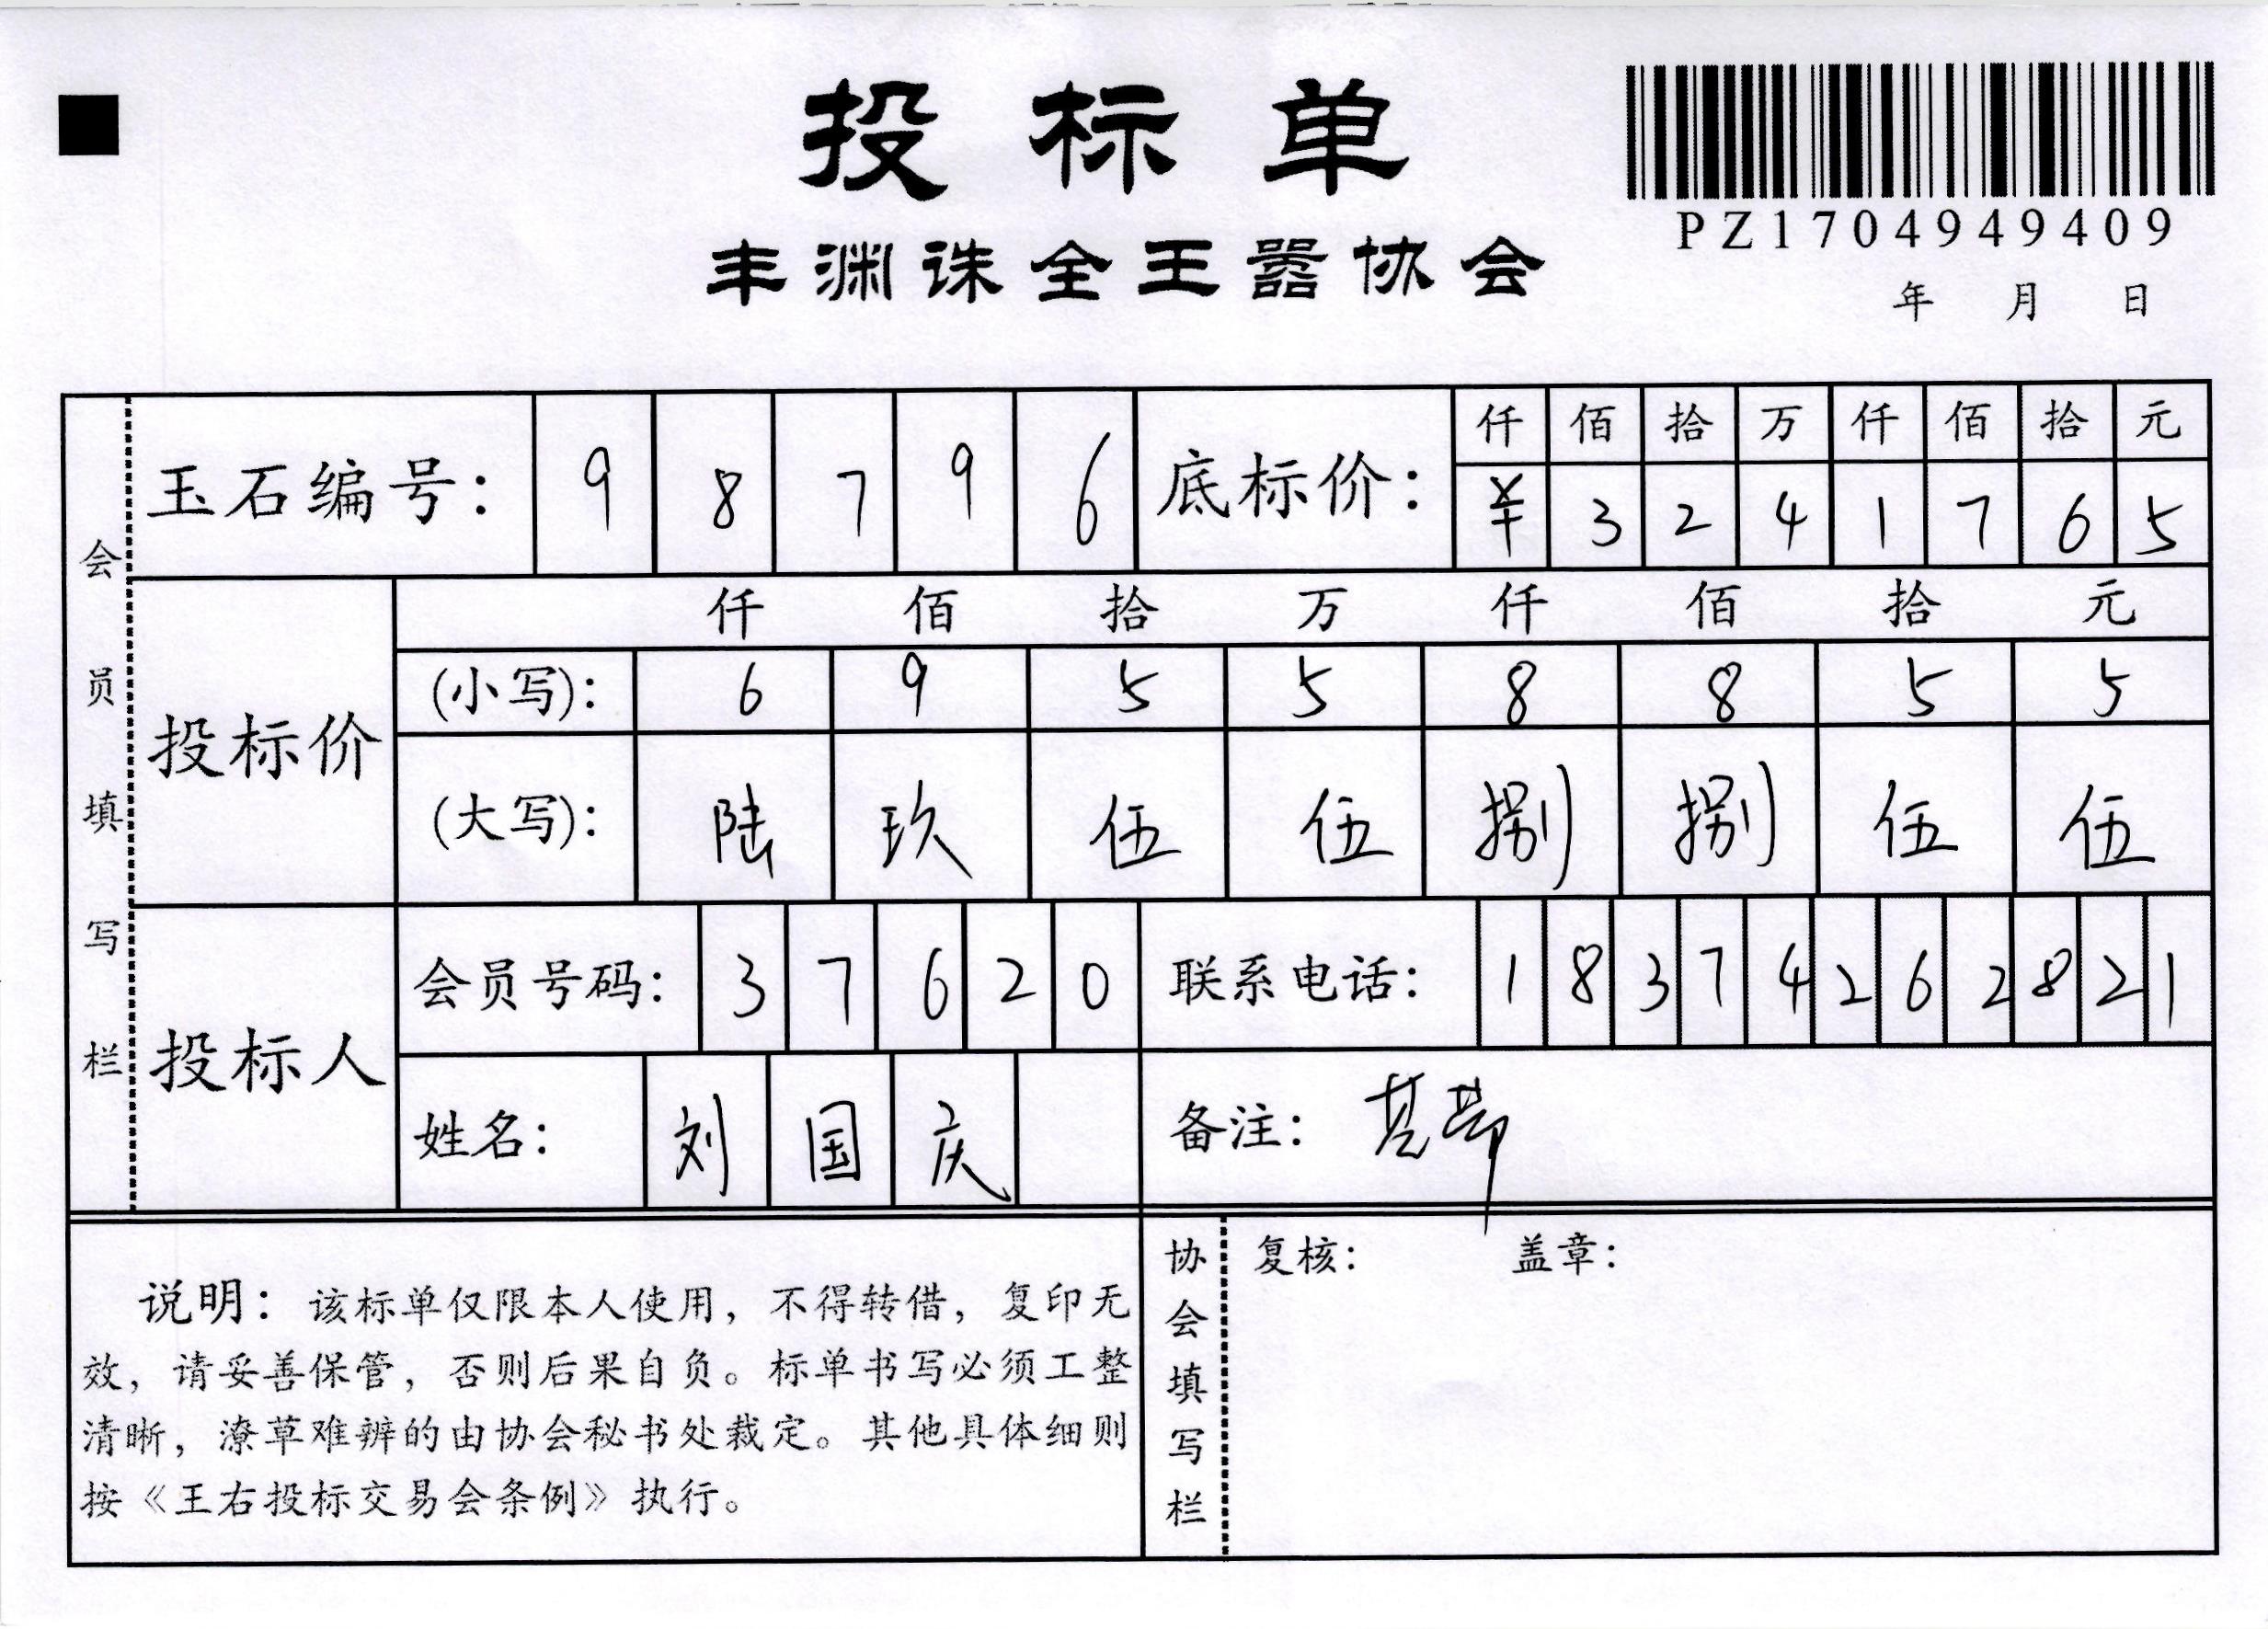 投标单
PZ1704949409
丰渊诛全王嚣协会
年 月 日
会员填写栏
玉石编号： 9 8 7 9 6
底标价： 仟 佰 拾 万 仟 佰 拾 元
¥ 3 2 4 1 7 6 5
投标价
仟 佰 拾 万 仟 佰 拾 元
(小写)： 6 9 5 5 8 8 5 5
(大写)： 陆 玖 伍 伍 捌 捌 伍 伍
投标人
会员号码： 3 7 6 2 0
联系电话： 1 8 3 7 4 2 6 2 8 2 1
姓名： 刘 国 庆
备注：
说明：该标单仅限本人使用，不得转借，复印无
效，请妥善保管，否则后果自负。标单书写必须工整
清晰，潦草难辨的由协会秘书处裁定。其他具体细则
按《王右投标交易会条例》执行。
协会填写栏
复核： 盖章：